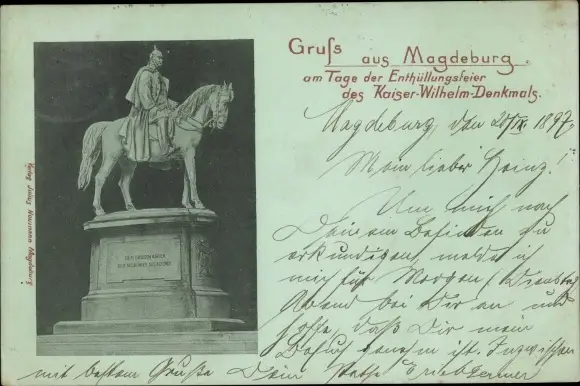 Gruß aus Magdeburg.
am Tage der Enthüllungsfeier
des Kaiser-Wilhelm-Denkmals.
Magdeburg, den 20/IX. 1897.
Mein lieber Heinz!
Um mich nach
Deinem Befinden zu
erkundigen, melde ich
mich für Morgen (Dienstag
Abend bei Dir an und
hoffe, daß Dir mein
Besuch genehm ist. Inzwischen
mit bestem Gruße Dein
Verlag Julius Neumann Magdeburg.